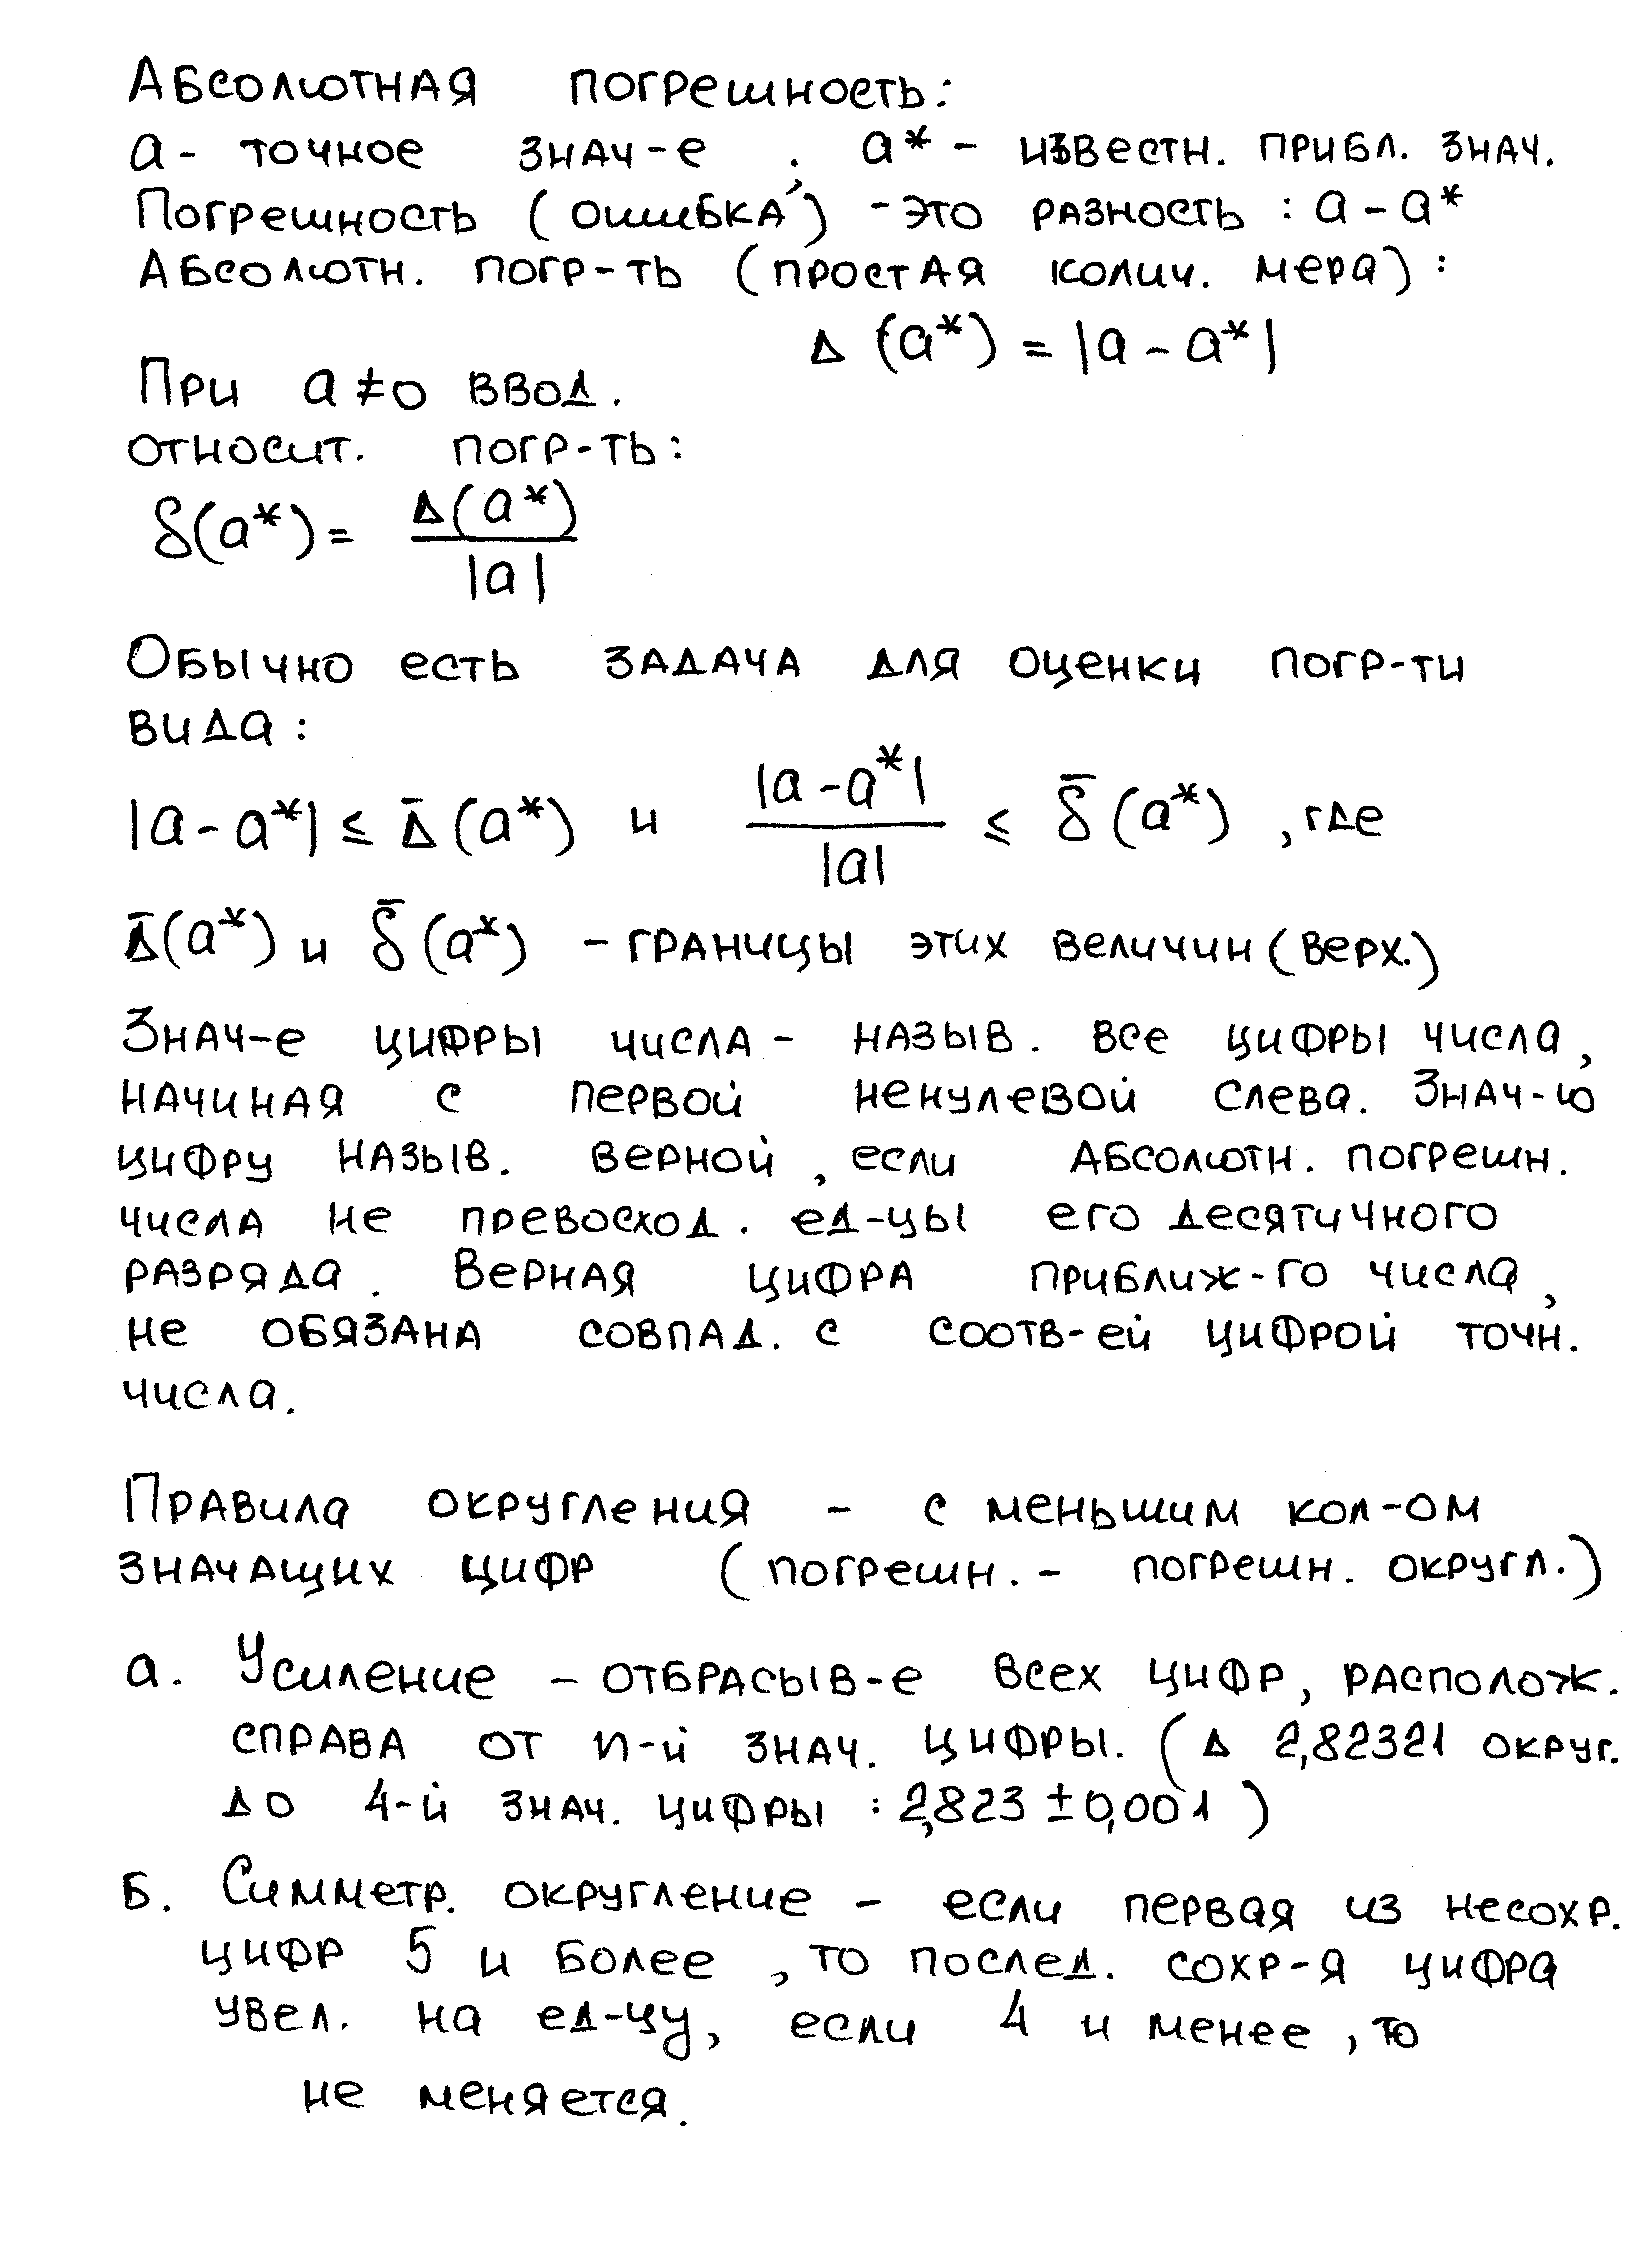 Абсолютная погрешность:
а - точное знач-е ; а* - известн. прибл. знач.
Погрешность (ошибка) - это разность : а - а*
Абсолютн. погр-ть (простая колич. мера) :
Δ (а*) = |а - а*|
При а ≠ 0 ввод.
относит. погр-ть :
δ(а*) = Δ(а*) / |а|
Обычно есть задача для оценки погр-ти
вида :
|а - а*| ≤ Δ̄ (а*) и |а - а*| / |а| ≤ δ̄ (а*) , где
Δ̄(а*) и δ̄ (а*) - границы этих величин (верх.)
Знач-е цифры числа - назыв. все цифры числа,
начиная с первой ненулевой слева. Знач-ю
цифру назыв. верной, если абсолютн. погрешн.
числа не превосход. ед-цы его десятичного
разряда. Верная цифра приближ-го числа,
не обязана совпад. с соотв-ей цифрой точн.
числа.
Правила округления - с меньшим кол-ом
значащих цифр (погрешн. - погрешн. округл.)
а. Усиление - отбрасыв-е всех цифр, располож.
справа от n-й знач. цифры. (Δ 2,82321 округ.
до 4-й знач. цифры : 2,823 ± 0,001 )
Б. Симметр. округление - если первая из несохр.
цифр 5 и более , то послед. сохр-я цифра
увел. на ед-цу, если 4 и менее , то
не меняется.